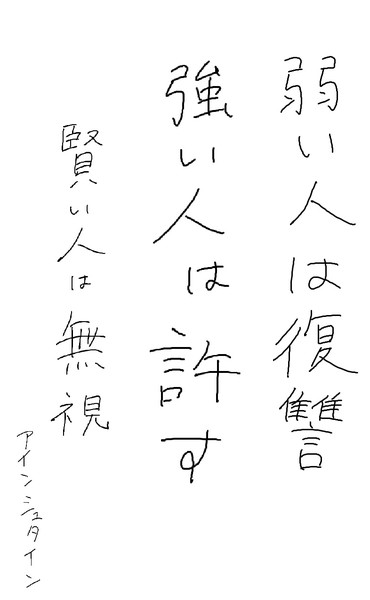 弱い人は復讐
強い人は許す
賢い人は無視
アインシュタイン